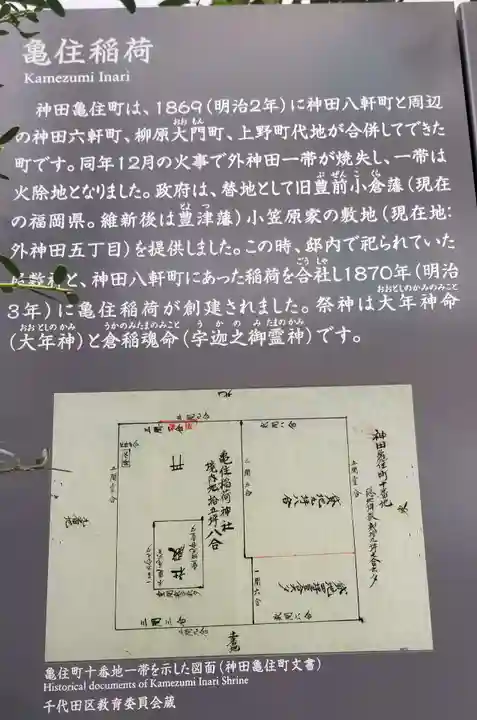 亀住稲荷
Kamezumi Inari
神田亀住町は、1869(明治2年)に神田八軒町と周辺
の神田六軒町、柳原大門町、上野町代地が合併してできた
町です。同年12月の火事で外神田一帯が焼失し、一帯は
火除地となりました。政府は、替地として旧豊前小倉藩(現在
の福岡県。維新後は豊津藩)小笠原家の敷地(現在地:
外神田五丁目)を提供しました。この時、邸内で祀られていた
と、神田八軒町にあった稲荷を合社し1870年(明治
3年)に亀住稲荷が創建されました。祭神は大年神命
(大年神)と倉稲魂命(宇迦之御霊神)です。
亀住稲荷神社
境内地拾五坪八合
井
社殿
神田亀住町十番地
三間三合
一間六合
亀住町十番地一帯を示した図面(神田亀住町文書)
Historical documents of Kamezumi Inari Shrine
千代田区教育委員会蔵